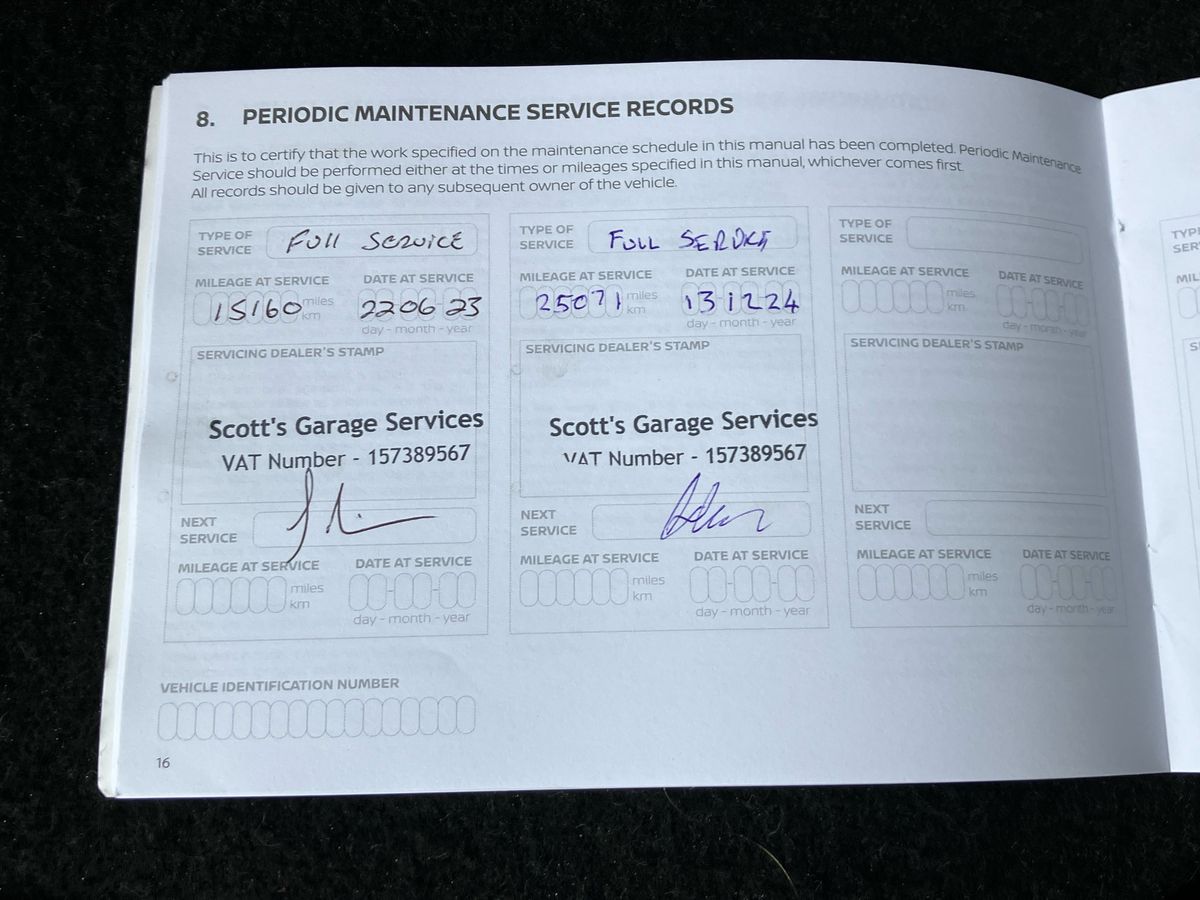 8. PERIODIC MAINTENANCE SERVICE RECORDS
This is to certify that the work specified on the maintenance schedule in this manual has been completed. Periodic Maintenance
Service should be performed either at the times or mileages specified in this manual, whichever comes first.
All records should be given to any subsequent owner of the vehicle.
TYPE OF
SERVICE
Full Service
MILEAGE AT SERVICE
DATE AT SERVICE
15160
miles
km
22 06 23
day - month - year
SERVICING DEALER'S STAMP
Scott's Garage Services
VAT Number - 157389567
NEXT
SERVICE
MILEAGE AT SERVICE
DATE AT SERVICE
miles
km
day - month - year
TYPE OF
SERVICE
FULL SERVICE
MILEAGE AT SERVICE
DATE AT SERVICE
25071
miles
km
13 12 24
day - month - year
SERVICING DEALER'S STAMP
Scott's Garage Services
VAT Number - 157389567
NEXT
SERVICE
MILEAGE AT SERVICE
DATE AT SERVICE
miles
km
day - month - year
TYPE OF
SERVICE
MILEAGE AT SERVICE
DATE AT SERVICE
miles
km
day - month - year
SERVICING DEALER'S STAMP
NEXT
SERVICE
MILEAGE AT SERVICE
DATE AT SERVICE
miles
km
day - month - year
VEHICLE IDENTIFICATION NUMBER
16